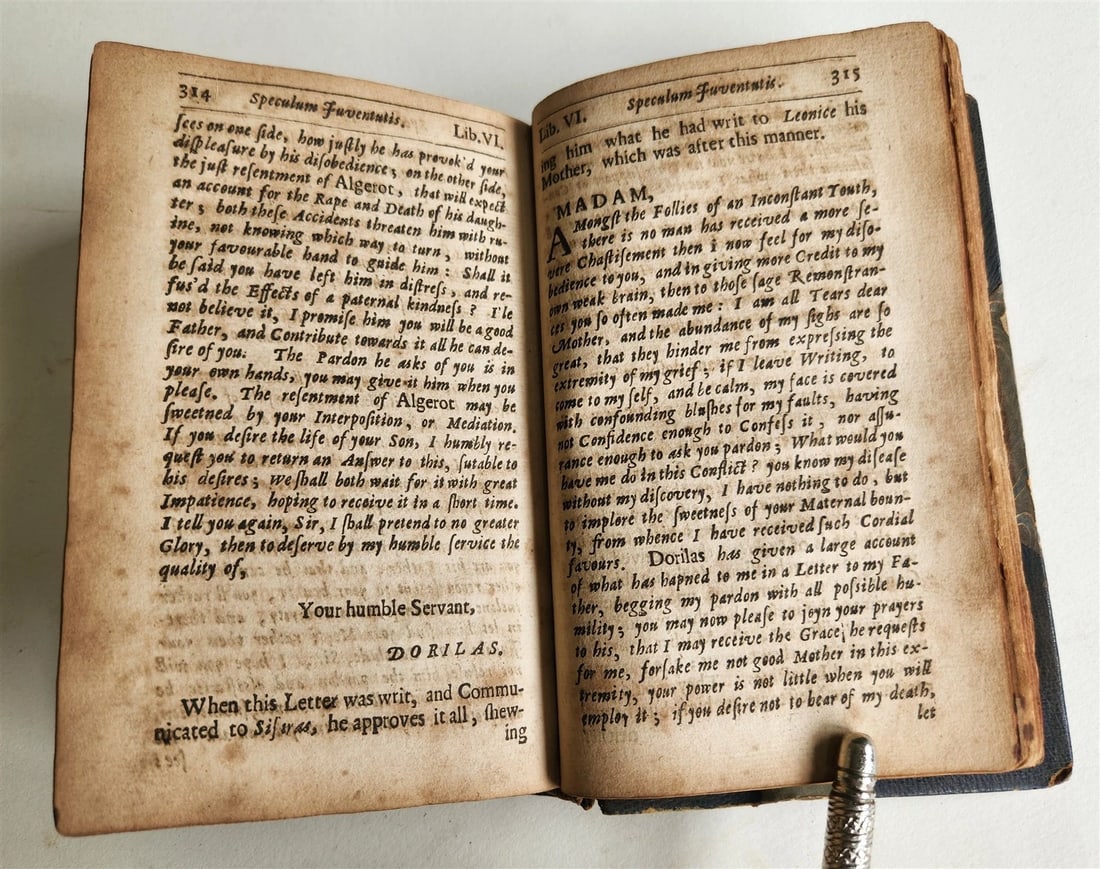 314 Speculum Juventutis. Lib. VI.
ſces on one ſide, how juſtly he has provok'd your
diſpleaſure by his diſobedience; on the other ſide,
the juſt reſentment of Algerot, that will expect
an account for the Rape and Death of his daugh-
ter; both theſe Accidents threaten him with ru-
ine, not knowing which way to turn, without
your favourable hand to guide him: Shall it
be ſaid you have left him in diſtreſs, and re-
fus'd the Effects of a paternal kindneſs? I'le
not believe it, I promiſe him you will be a good
Father, and Contribute towards it all he can de-
ſire of you. The Pardon he asks of you is in
your own hands, you may give it him when you
pleaſe. The reſentment of Algerot may be
ſweetned by your Interpoſition, or Mediation.
If you deſire the life of your Son, I humbly re-
queſt you to return an Anſwer to this, ſutable to
his deſires; We ſhall both wait for it with great
Impatience, hoping to receive it in a ſhort time.
I tell you again, Sir, I ſhall pretend to no greater
Glory, then to deſerve by my humble ſervice the
quality of,
Your humble Servant,
DORILAS.
When this Letter was writ, and Commu-
nicated to Siſtras, he approves it all, ſhew-
ing
Lib. VI. Speculum Juventutis. 315
ing him what he had writ to Leonice his
Mother, which was after this manner.
MADAM,
AMongſt the Follies of an Inconſtant Youth,
there is no man has received a more ſe-
vere Chaſtiſement then i now feel for my diſo-
bedience to you, and in giving more Credit to my
own weak brain, then to thoſe ſage Remonſtran-
ces you ſo often made me: I am all Tears dear
Mother, and the abundance of my ſighs are ſo
great, that they hinder me from expreſſing the
extremity of my grief; if I leave Writing, to
come to my ſelf, and be calm, my face is covered
with confounding bluſhes for my faults, having
not Confidence enough to Confeſs it, nor aſſu-
rance enough to ask you pardon; What would you
have me do in this Conflict? you know my diſeaſe
without my diſcovery, I have nothing to do, but
to implore the ſweetneſs of your Maternal boun-
ty, from whence I have received ſuch Cordial
favours. Dorilas has given a large account
of what has hapned to me in a Letter to my Fa-
ther, begging my pardon with all poſſible hu-
mility; you may now pleaſe to joyn your prayers
to his, that I may receive the Grace he requeſts
for me, forſake me not good Mother in this ex-
tremity, your power is not little when you will
employ it; if you deſire not to hear of my death,
let